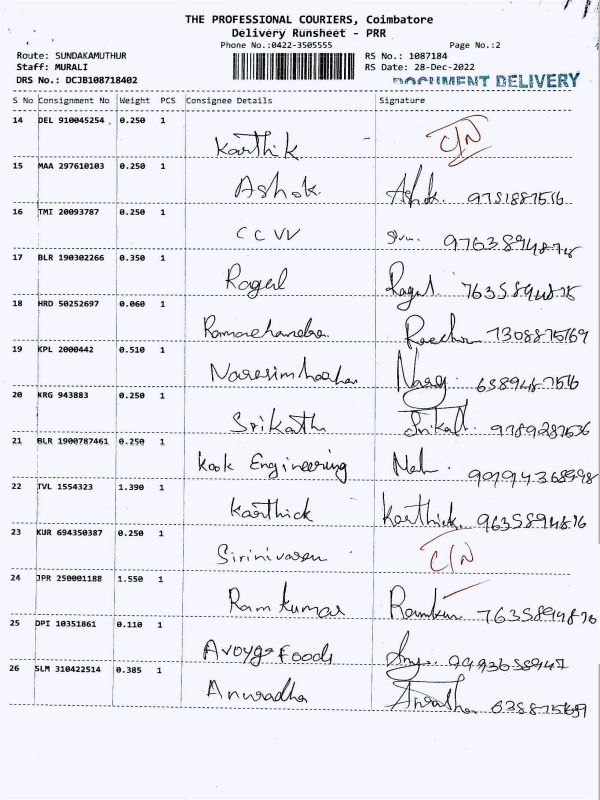 THE PROFESSIONAL COURIERS, Coimbatore
Delivery Runsheet - PRR
Phone No.:0422-3505555 Page No.:2
Route: SUNDAKAMUTHUR RS No.: 1087184
Staff: MURALI RS Date: 28-Dec-2022
DRS No.: DCJB108718402 DOCUMENT DELIVERY
S No Consignment No Weight PCS Consignee Details Signature
14 DEL 910045254 0.250 1
Karthik C/N
15 MAA 297610103 0.250 1
Ashok Ashok. 9751887516
16 TMI 20093787 0.250 1
CCVV
17 BLR 190302266 0.350 1
Ragul Ragul
18 HRD 50252697 0.060 1
Ramachandra 7308875769
19 KPL 2000442 0.510 1
Narasimhachar
20 KRG 943883 0.250 1
Srikath Srikath 9789287536
21 BLR 1900787461 0.250 1
Kook Engineering
22 TVL 1554323 1.390 1
Karthick Karthick. 9635894816
23 KUR 694350387 0.250 1
Sirinivasen C/N
24 JPR 250001188 1.550 1
Ram kumar Ramkum
25 DPI 10351861 0.110 1
Avoyga Foods
26 SLM 310422514 0.385 1
Anuradha